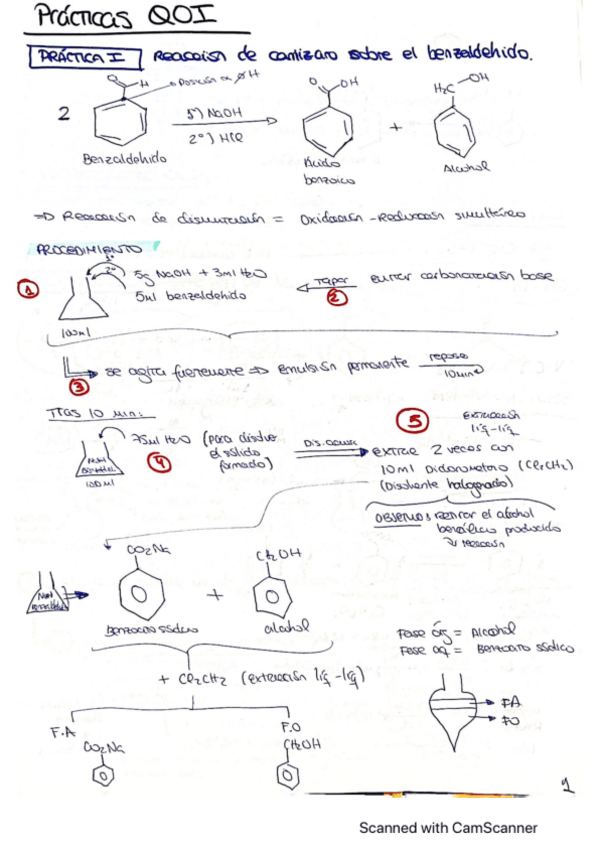 Prácticas QOI
PRÁCTICA I Reacción de cannizaro sobre el benzaldehido.
H
→ Posición α H
2
1º) NaOH
2º) HCl
O OH
+
H₂C OH
Benzaldehido
Ácido benzoico
Alcohol
⇒ Reacción de dismutación = Oxidación - Reducción simultánea
PROCEDIMIENTO
1
2º
5g NaOH + 3ml H₂O
5ml benzaldehido
100ml
Tapar
2
evitar carbonatación base
3
se agita fuertemente ⇒ emulsión permanente
reposo
10min
Tras 10 min:
75ml H₂O (para disolver el sólido formado)
4
NaOH
benzaldehido
100ml
Dis. acuosa
5
Extracción liq-liq
extrae 2 veces con 10ml Diclorometano (Cl₂CH₂)
(Disolvente halogenado)
OBSERVAMOS retirar el alcohol bencílico producido reacción
NaOH
benzaldehido
CO₂Na
Benzoato sódico
+
CH₂OH
alcohol
+ Cl₂CH₂ (extracción liq-liq)
Fase órg = Alcohol
Fase aq = Benzoato sódico
F.A
CO₂Na
F.O
CH₂OH
FA
FO
1
Scanned with CamScanner